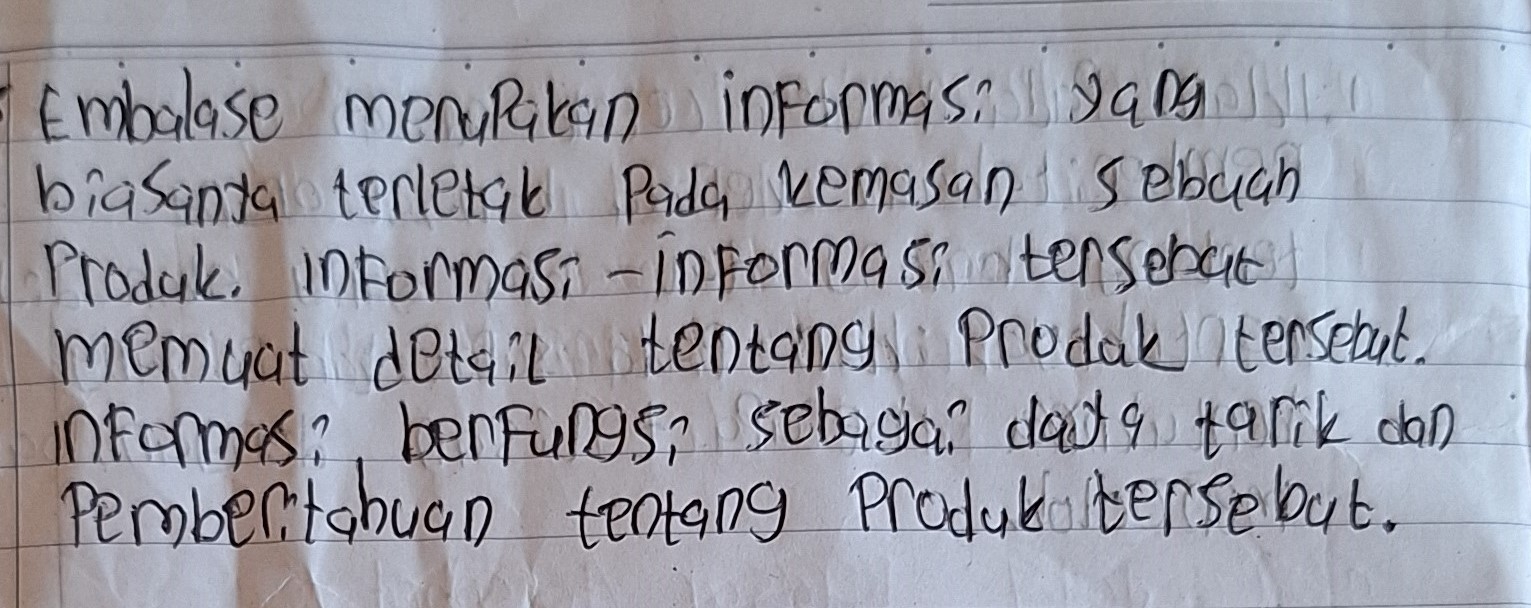 Embalase merupakan informasi yang
biasanya terletak Pada kemasan sebuah
Produk. informasi-informasi tersebut
memuat detail tentang Produk tersebut.
informasi berfungsi sebagai daya tarik dan
Pemberitahuan tentang Produk tersebut.